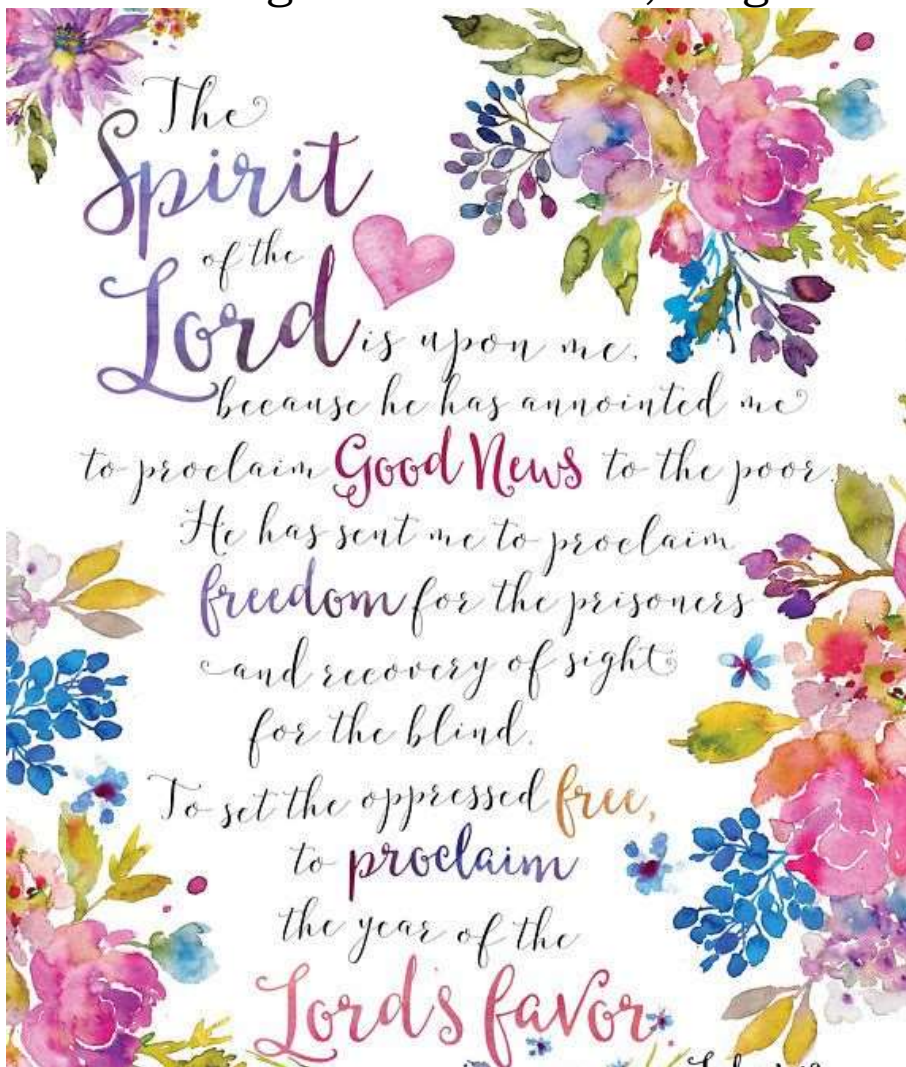 The
Spirit
of the
Lord is upon me,
because he has annointed me
to proclaim Good News to the poor.
He has sent me to proclaim
freedom for the prisoners
and recovery of sight
for the blind.
To set the oppressed free,
to proclaim
the year of the
Lord's favor.